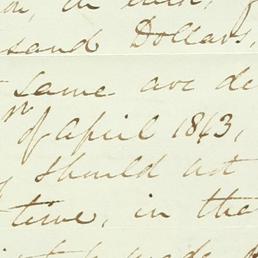 on, in
sand Dollars,
same are de
of April 1863,
should not
time, in the
made